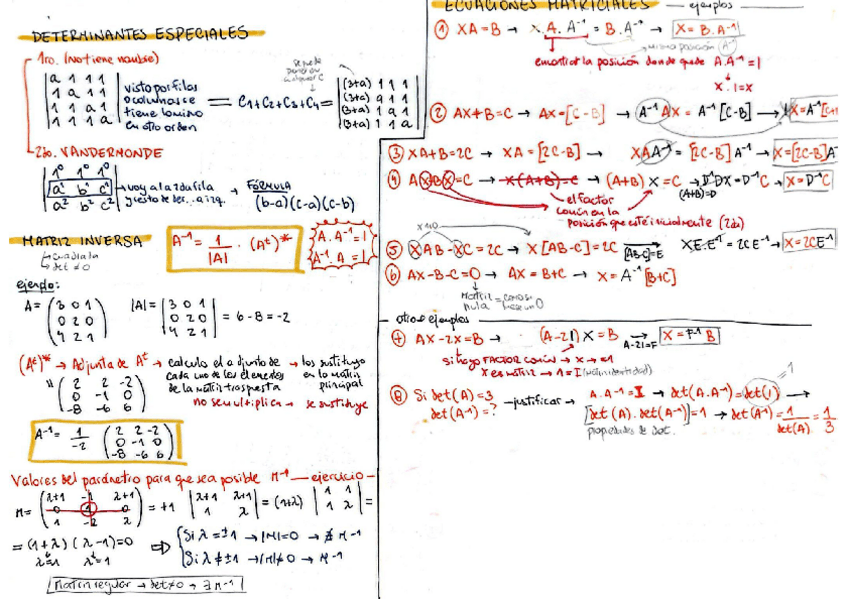 DETERMINANTES ESPECIALES
1ro. (No tiene nombre)
|a 1 1 1|
|1 a 1 1|
|1 1 a 1|
|1 1 1 a|
visto por filas
o columnas se
tiene lo mismo
en otro orden
= C1+C2+C3+C4 =
se puede
poner en
cualquier C
|(3+a) 1 1 1|
|(3+a) a 1 1|
|(3+a) 1 a 1|
|(3+a) 1 1 a|
2do. VANDERMONDE
|1⁰ 1⁰ 1⁰|
|a¹ b¹ c¹|
|a² b² c²|
→ voy a la 2da fila
→ FÓRMULA
(b-a)(c-a)(c-b)
MATRIZ INVERSA
→ cuadrada
→ det ≠ 0
A⁻¹ = 1/|A| · (Aᵗ)*
A·A⁻¹=I
A⁻¹·A=I
ejemplo:
A = (3 0 1
0 2 0
4 2 1)
|A| = |3 0 1
0 2 0
4 2 1| = 6-8 = -2
(Aᵗ)* → Adjunta de Aᵗ → calculo el adjunto de → los sustituyo
cada uno de los elementos en la matriz
de la matriz traspuesta principal
no se multiplica → se sustituye
(2 2 -2
0 -1 0
-8 -6 6)
A⁻¹ = 1/-2 (2 2 -2
0 -1 0
-8 -6 6)
Valores del parámetro para que sea posible M⁻¹ — ejercicio —
M = (λ+1 -1 λ+1
0 1 0
1 -2 λ) = +1 |λ+1 λ+1
1 λ| = (1+λ) |1 1
1 λ| =
= (1+λ)(λ-1)=0
λ=1 λ=1
⇒ { Si λ = ±1 → |M|=0 → ∄ M⁻¹
Si λ ≠ ±1 → |M|≠0 → M⁻¹
Matriz regular → det≠0 → ∃ M⁻¹
ECUACIONES MATRICIALES — ejemplos
① XA=B → X.A.A⁻¹ = B.A⁻¹ → X = B.A⁻¹
misma posición A⁻¹
encontrar la posición donde quede A.A⁻¹=1
X.1=X
② AX+B=C → AX=[C-B] → A⁻¹AX = A⁻¹[C-B] → X=A⁻¹[C-
③ XA+B=2C → XA=[2C-B] → XAA⁻¹=[2C-B]A⁻¹ → X=[2C-B]A
④ AX+BX=C → X(A+B)=C → (A+B)X=C → D⁻¹DX=D⁻¹C → X=D⁻¹C
(A+B)=D
el factor
común en la
posición que esté inicialmente (2da)
⑤ XAB-XC=2C → X[AB-C]=2C → X.E.E⁻¹=2CE⁻¹ → X=2CE⁻¹
[AB-C]=E
⑥ AX-B-C=0 → AX=B+C → X=A⁻¹[B+C]
Matriz
nula
— otros ejemplos
⑦ AX-2X=B → (A-2I)X=B → X=F⁻¹B
A-2I=F
si hago FACTOR COMÚN → X →
X es matriz → 1=I (Matriz identidad)
⑧ Si det(A)=3
det(A⁻¹)=?
—justificar→ A.A⁻¹=I → det(A.A⁻¹)=det(I) →
=1
[det(A).det(A⁻¹)]=1 → det(A⁻¹)=1/det(A)=1/3
propiedades de det.